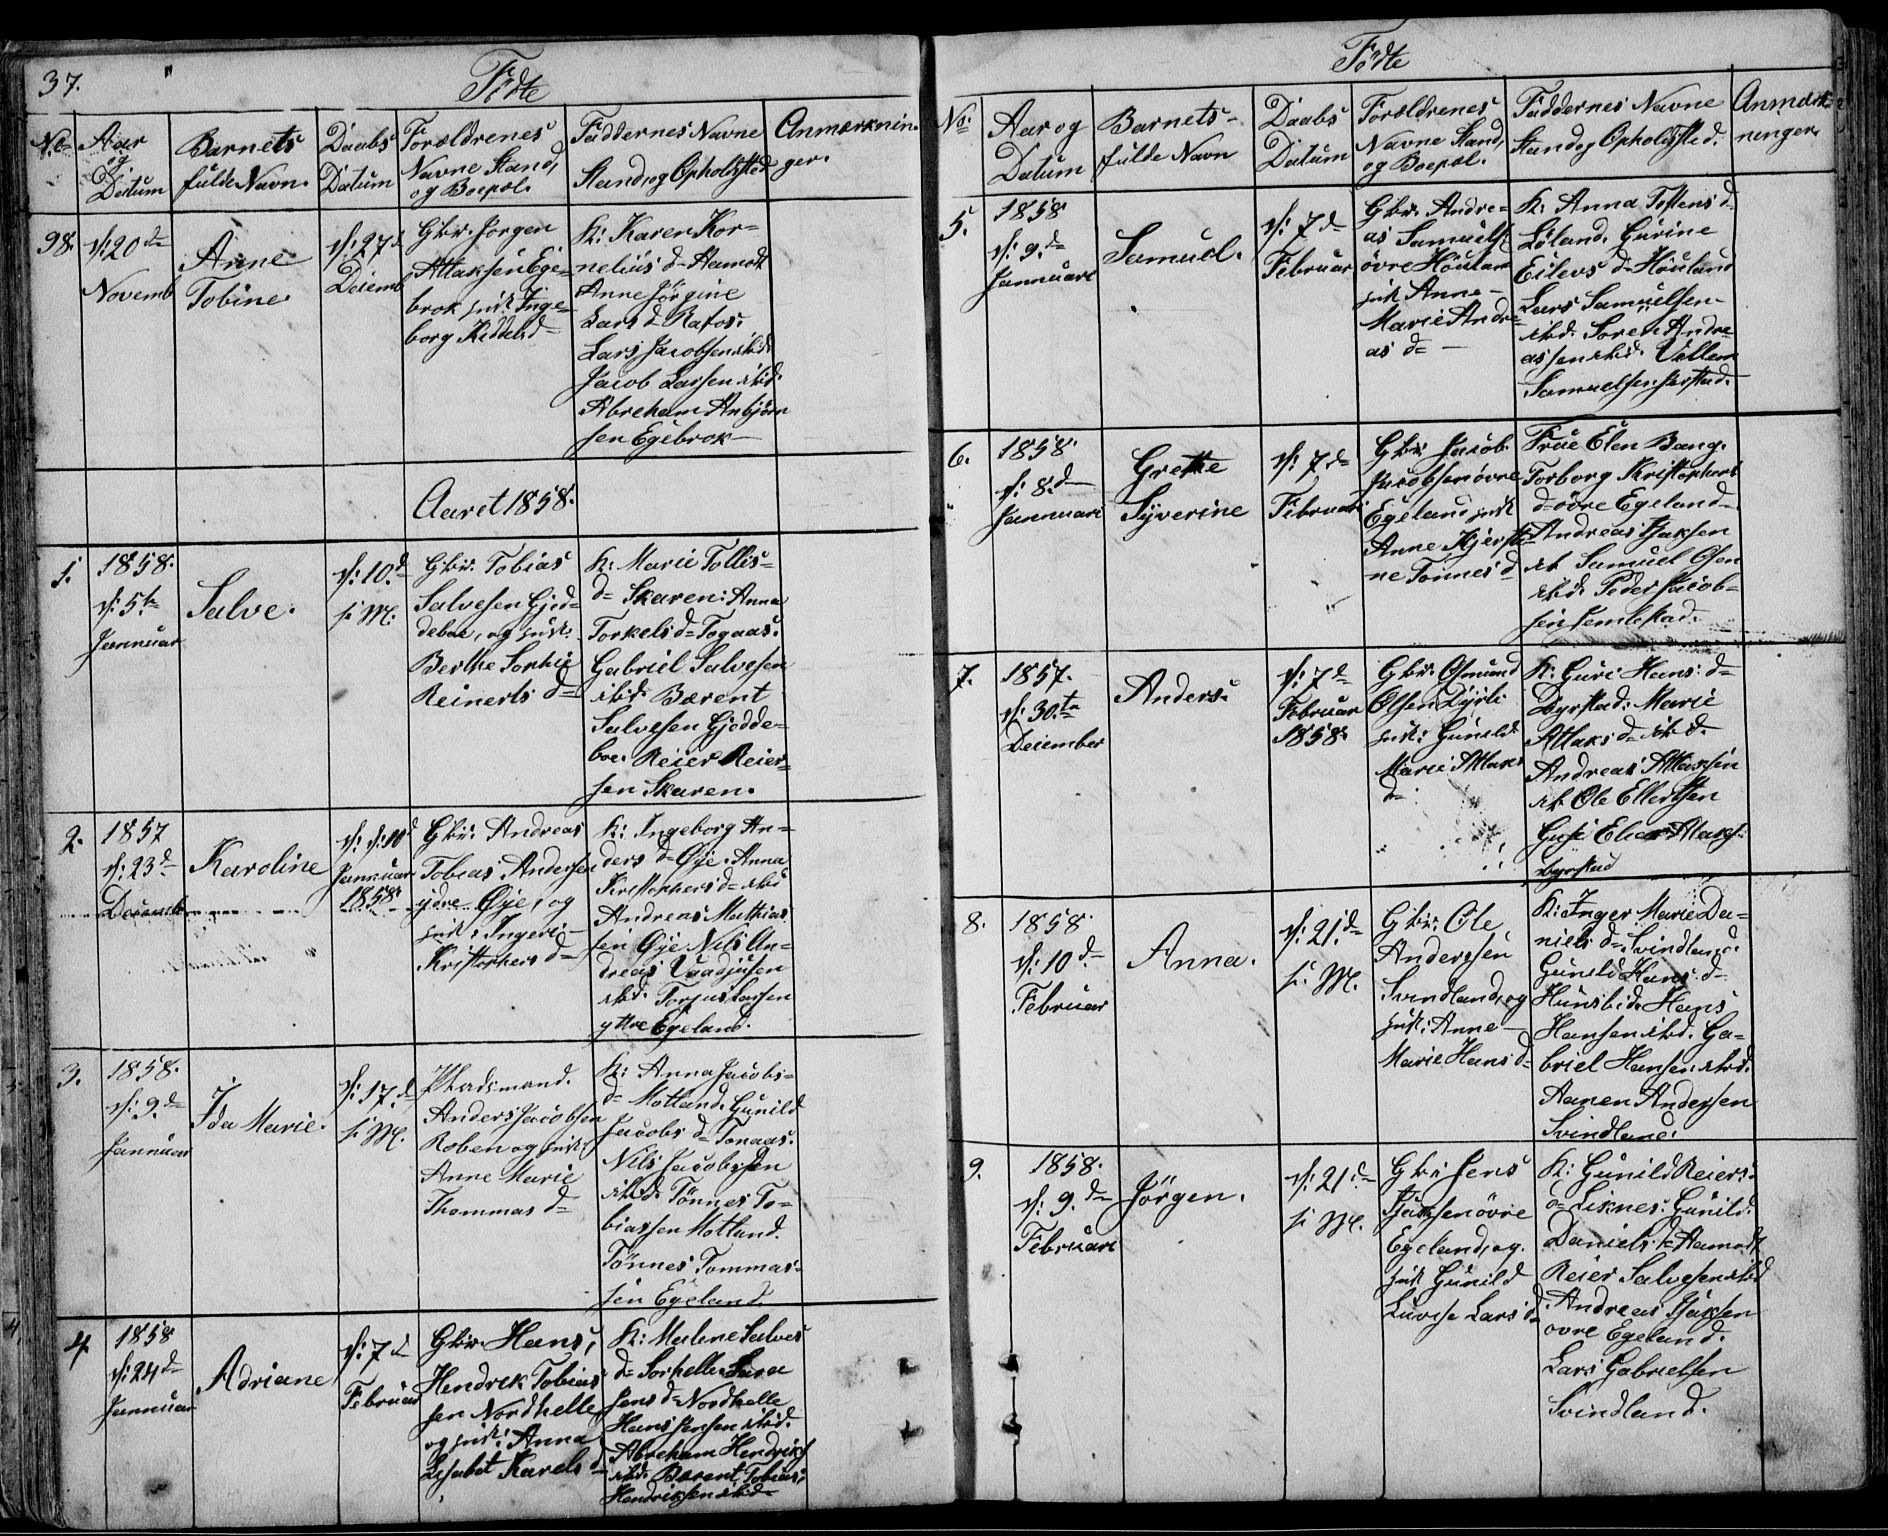 37.
Fødte
No.
Aar
og
Datum
Barnets
fulde Navn.
Daabs
Datum
Forældrenes
Navne Stand,
og Boepæl.
Faddernes Navne
Stand, og Opholdsted
Anmærknin-
ger.
98.
d: 20de
Novemb
Anne
Tobine
d: 27d
Decemb
Gbr. Jørgen
Attaksen Ege-
brok, Inge-
borg Kiddelsd
K: Karen Kor-
nelius d= Aamodt
Anne Jørgine
Lars d= Rafos.
Lars Jacobsen ibid.
Jacob Larsen ibid.
Abraham Anbjørn
sen Egebrok
Aaret 1858.
1.
1858.
d: 5te
Januuar
Salve.
d: 10d
s: M:
Gbr. Tobias
Salvesen Gjed-
deboe, og
Berthe Sophie
Reinerts d=
K: Marie Tollis-
d= Skaren: Anna
Torkels d= Togaas.
Gabriel Salvesen
ibid. Bærent
Salvesen Gjedde-
boe. Reier Reier-
sen Skaren.
2.
1857
d: 23d
Decemb
Karoline
d: 10d
Januuar
1858.
Gbr: Andreas
Tobias Andersen
ydre Øye, og
Ingeri
Kristophers d=
K: Ingeborg An-
ders d= Øye. Anna
Kristophers d= ibid
Andreas Mathias
sen Øye Nils An-
dreas
ibid. Torjus Larsen
yttre Egeland.
3.
1858.
d: 9de
Januuar
Ida Marie.
d: 17.d
s: M.
Pladsmand.
Anders Jacobsen
Roben og
Anne Marie
Thommas d=
K: Anna Jacobs-
d= Motland. Gunild
Jacobs d= Tonaas.
Nils Jacobsen
ibid. Tønnes To-
biassen Motland.
Tønnes Tommas-
sen Egeland.
4.
1858
d: 24d
Januuar
Adriane
d: 7d
Februar
Gbr. Hans,
Hendrek Tobias
sen Nordhelle,
og Anna
Lisabet Karels d
K: Malene Salves
d= Sørhelle. Sara
Jens d= Nordhelle
Hans Jensen ibid.
Abreham Hendriks
ibid. Bærent Tobias
Hendriksen ibid
Fødte
No.
Aar og
Datum
Barnets
fulde Navn
Daabs
Datum
Forældrenes
Navne Stand,
og Boepæl.
Faddernes Navne
Stand og Opholdsted.
Anmærk
ninger.
5.
1858
d: 9.de
Januuari
Samuel.
d: 7de
Februar
Gbr. Andre-
as Samuels
øvre Houland
Anne
Marie Andre-
as d=
K: Anna Tostens d
Løland. Gurine
Eilevs d= Houland
Lars Samuelsen
ibid. Søren Andre-
assen ibid. Villem
Samuelsen
6.
1858.
d: 8.d
Januuari
Grethe
Syverine
d: 7de
Februari
Gbr. Jacob
Jacobsen øvre
Egeland
Anne
ne Tønnes d
Frue Elen Bang.
Torborg Kristophers
d= øvre Egeland
Andreas Isaksen
ib. Samuel Osen
ibid. Peder Jacob-
sen
7.
1857.
d: 30.te
December
Anders.
d: 7de
Februar
1858.
Gbr. Osmund
Olsen
Gunild
Marie Attaks
d=
K: Guri Hans: d=
Dyrstad: Marie
Attaks d= ibid.
Andreas Attaksen
ib. Ole Ellertsen
Elias Attaks.
Dyrstad
8.
1858.
d: 10d.
Februar
Anna.
d: 21.de
s: M.
Gbr: Ole
Anderssen
Svindland, og
Anne
Marie Hans d=
K: Inger Marie Da-
niels d= Svindland.
Gunild Hans: d=
Hunsbid. Hans
Hansen ibid. Ga-
briel Hansen ibid.
Aanen Andersen
Svindland.
9.
1858.
d: 9.de
Februari
Jørgen.
d: 21de
s: M.
Gbr. Jens
Isaksen øvre
Egeland, og
Gunild
Luvise Lars d=
K: Gunild Reiers
d= Liknes. Gunild.
Daniels d= Aamodt
Reier Salvesen ibid
Andreas Isaksen
øvre Egeland.
Lars Gabrielsen
Svindland.